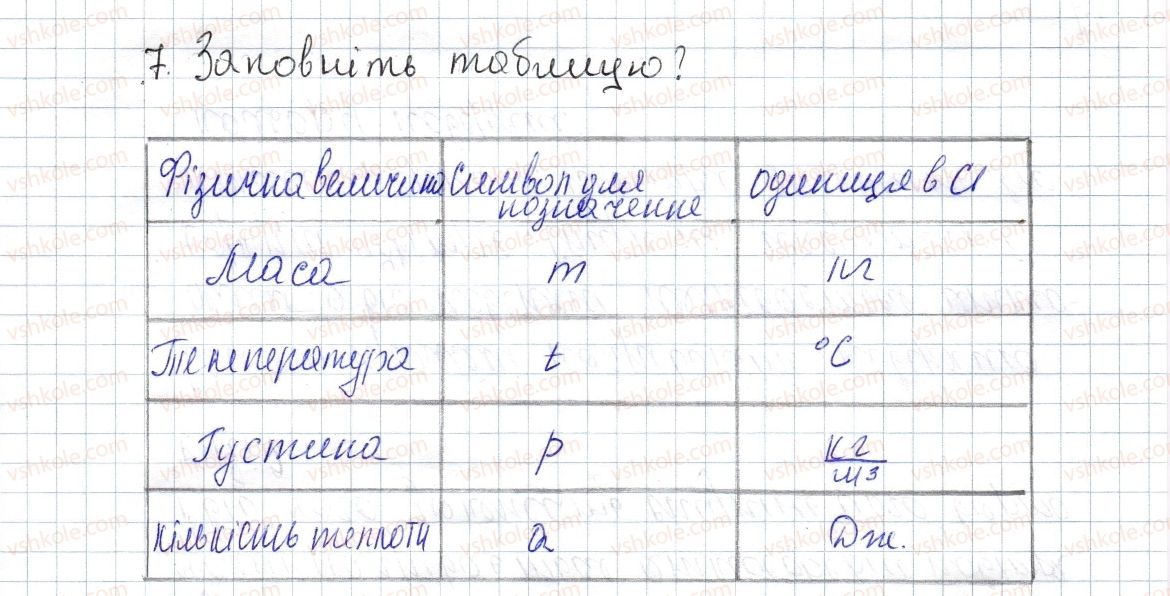 7. Заповніть таблицю?
Фізична величина Символ для позначення одиниця в СІ
Маса m кг
Температура t °C
Густина ρ кг/м3
кількість теплоти Q Дж.
vshkole.com